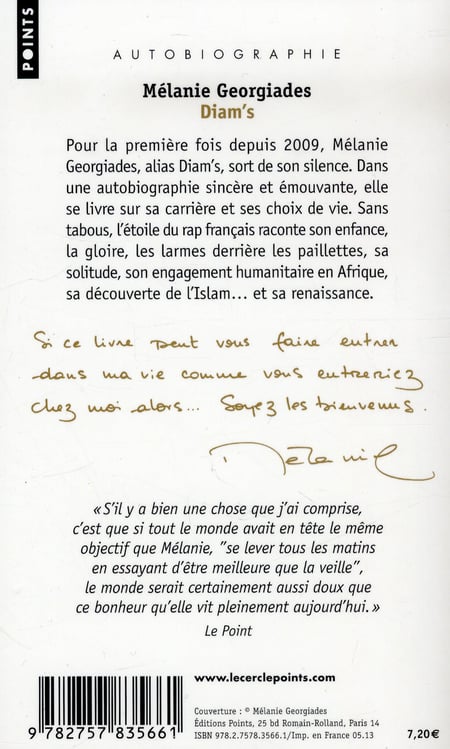 POINTS
AUTOBIOGRAPHIE
Mélanie Georgiades
Diam's
Pour la première fois depuis 2009, Mélanie
Georgiades, alias Diam's, sort de son silence. Dans
une autobiographie sincère et émouvante, elle
se livre sur sa carrière et ses choix de vie. Sans
tabous, l'étoile du rap français raconte son enfance,
la gloire, les larmes derrière les paillettes, sa
solitude, son engagement humanitaire en Afrique,
sa découverte de l'Islam... et sa renaissance.
Si ce livre peut vous faire entrer
dans ma vie comme vous entreriez
chez moi alors... Soyez les bienvenus.
Mélanie
« S'il y a bien une chose que j'ai comprise,
c'est que si tout le monde avait en tête le même
objectif que Mélanie, "se lever tous les matins
en essayant d'être meilleure que la veille",
le monde serait certainement aussi doux que
ce bonheur qu'elle vit pleinement aujourd'hui. »
Le Point
www.lecerclepoints.com
Couverture : © Mélanie Georgiades
Éditions Points, 25 bd Romain-Rolland, Paris 14
ISBN 978.2.7578.3566.1/Imp. en France 05.13
7,20€
9 782757 835661